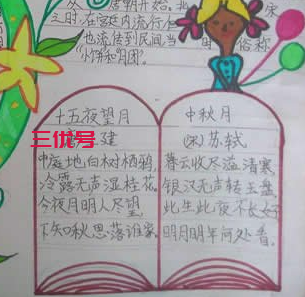 唐朝开始。
宋
三时,在宫廷内流行个
也流传到民间,当
时
俗称
"小饼和月团"。
十五夜望月
三优号
建
中庭地白树栖鸦,
冷露无声湿桂花。
今夜月明人尽望,
不知秋思落谁家。
中秋月
(宋)苏轼
暮云收尽溢清寒,
银汉无声转玉盘。
此生此夜不长好,
明月明年何处看。